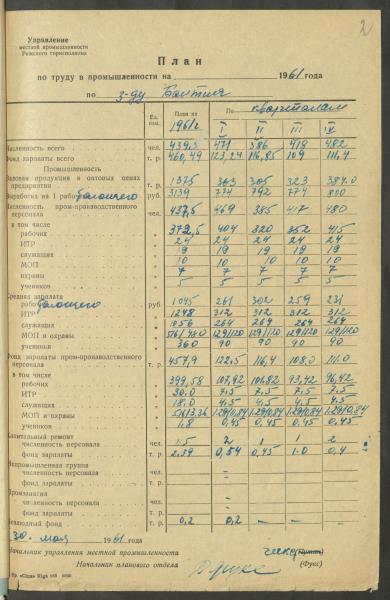 2
Управление
местной промышленности
Рижского горисполкома
План
по труду в промышленности на 1961 года
по з-ду Балтия
Ед. изм. План 1961г По кварталам
I II III IV
Численность всего чел. 439,3 471 386 418 482
Фонд зарплаты всего т. р. 460,49 123,24 116,85 109 111,4
Промышленность
Валовая продукция в оптовых ценах
предприятия т. р. 1375 363 305 323 384.0
Выработка на 1 рабочего руб. 3139 774 792 774 800
Численность пром-производственного
персонала чел. 437,5 469 385 417 480
в том числе
рабочих 372,5 404 320 352 415
ИТР 24 24 24 24 24
служащих 19 19 19 19 19
МОП 10 10 10 10 10
охраны 7 7 7 7 7
учеников 5 5 5 5 5
Средняя зарплата
рабочего руб. 1045 261 302 259 231
ИТР 1248 312 312 312 312
служащих 1056 264 264 264 264
МОП и охраны 129/120 129/120 129/120 129/120
учеников 360 90 90 90 90
Фонд зарплаты пром-производственного
персонала т. р. 457,9 122,5 116,4 108.0 111.0
в том числе
рабочих 399,58 107,92 101,82 93,42 96,42
ИТР 30.0 7.5 7.5 7.5 7.5
служащих 18.0 4.5 4.5 4.5 4.5
МОП и охраны 1.29/0.84 1.29/0.84 1.29/0.84 1.29/0.84
учеников 1,8 0,45 0.45 0.45 0.45
Капитальный ремонт
численность персонала чел. 1.5 2 1 1 2
фонд зарплаты т. р. 2.39 0,54 0,45 1.0 0.4
Непромышленная группа
численность персонала чел. –
фонд зарплаты т. р. –
численность персонала чел. –
фонд зарплаты т. р. –
Безлюдный фонд т. р. 0,2 0,2 – – –
30. мая 1961 года
Начальник управления местной промышленности
Начальник планового отдела (Фукс)